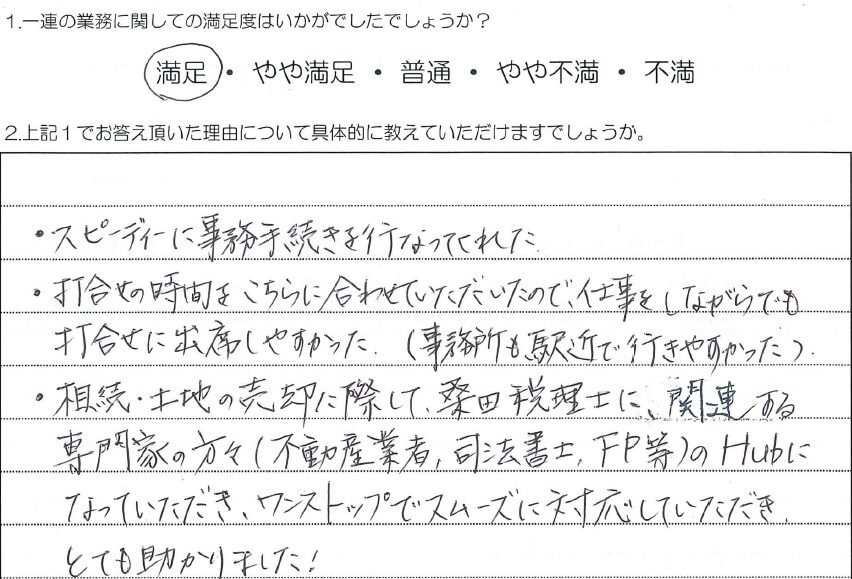 1.一連の業務に関しての満足度はいかがでしたでしょうか？
満足・やや満足・普通・やや不満・不満
2.上記１でお答え頂いた理由について具体的に教えていただけますでしょうか。
・スピーディーに事務手続きを行なってくれた.
・打合せの時間をこちらに合わせていただいたので、仕事をしながらでも
打合せに出席しやすかった.（事務所も駅近で行きやすかった）.
・相続・土地の売却に際して、桑田税理士に、関連する
専門家の方々（不動産業者,司法書士,FP等）のHubに
なっていただき、ワンストップでスムーズに対応していただき、
とても助かりました！